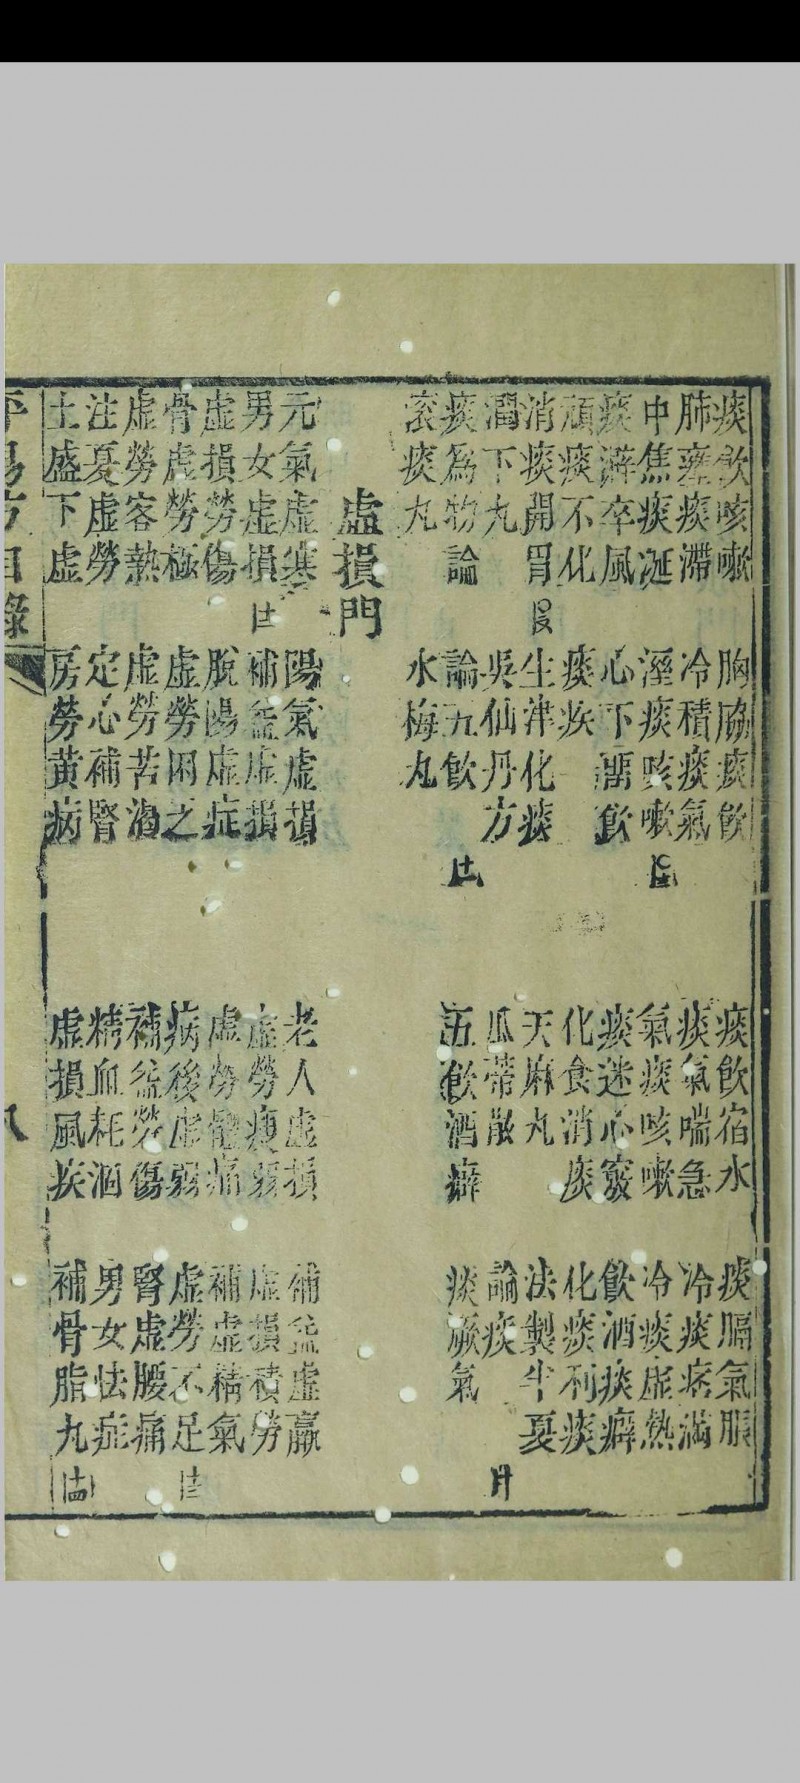 痰飲咳嗽 胸膈痰飲 痰飲宿水 痰膈氣脹
肺壅痰滯 冷積痰氣 痰氣喘急 冷痰痞滿
中焦痰涎 溼痰咳嗽 氣痰咳嗽 冷痰虛熱
痰澼卒風 心下 飲 痰迷心竅 飲酒痰癖
頑痰不化 痰疾 化食消痰 化痰利痰
消痰開胃 生津化痰 天麻丸 法製半夏
潤下丸 吳仙丹方 瓜蒂散 論痰
痰爲物論 論五飲 五飲酒癖 痰厥氣
滚痰丸 水梅丸
虛損門
元氣虛寒 陽氣虛損 老人虛損 補益虛羸
男女虛損 補益虛損 虛勞瘦弱 虛損積勞
虛損勞傷 脫陽虛症 虛勞體痛 補虛精氣
骨虛勞極 虛勞困乏 病後虛弱 虛勞不足
虛勞客熱 虛勞苦渴 補益勞傷 腎虛腰痛
注夏虛勞 定心補腎 精血耗涸 男女怯症
土盛下虛 房勞黃病 虛損風疾 補骨脂丸 十四
方目錄
八